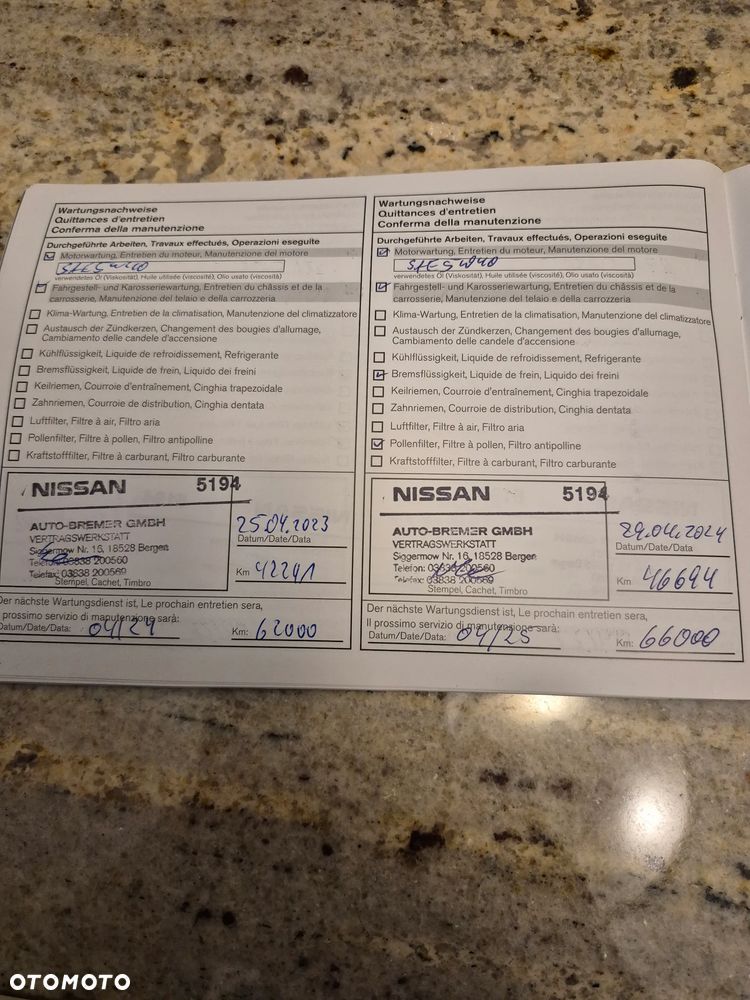 Wartungsnachweise
Quittances d'entretien
Conferma della manutenzione
Durchgeführte Arbeiten, Travaux effectués, Operazioni eseguite
Motorwartung, Entretien du moteur, Manutenzione del motore
5W40
verwendetes Öl (Viskosität), Huile utilisée (viscosité), Olio usato (viscosità)
Fahrgestell- und Karosseriewartung, Entretien du châssis et de la
carrosserie, Manutenzione del telaio e della carrozzeria
Klima-Wartung, Entretien de la climatisation, Manutenzione del climatizzatore
Austausch der Zündkerzen, Changement des bougies d'allumage,
Cambiamento delle candele d'accensione
Kühlflüssigkeit, Liquide de refroidissement, Refrigerante
Bremsflüssigkeit, Liquide de frein, Liquido dei freini
Keilriemen, Courroie d'entraînement, Cinghia trapezoidale
Zahnriemen, Courroie de distribution, Cinghia dentata
Luftfilter, Filtre à air, Filtro aria
Pollenfilter, Filtre à pollen, Filtro antipolline
Kraftstofffilter, Filtre à carburant, Filtro carburante
NISSAN 5194
AUTO-BREMER GMBH
VERTRAGSWERKSTATT
Siggermow Nr. 16, 18528 Bergen
Telefon: 03838 200560
Telefax: 03838 200569
Stempel, Cachet, Timbro
25.04.2023
Datum/Date/Data
Km 42241
Der nächste Wartungsdienst ist, Le prochain entretien sera,
prossimo servizio di manutenzione sarà:
Datum/Date/Data: 04/24 Km: 62000
Wartungsnachweise
Quittances d'entretien
Conferma della manutenzione
Durchgeführte Arbeiten, Travaux effectués, Operazioni eseguite
Motorwartung, Entretien du moteur, Manutenzione del motore
5W40
verwendetes Öl (Viskosität), Huile utilisée (viscosité), Olio usato (viscosità)
Fahrgestell- und Karosseriewartung, Entretien du châssis et de la
carrosserie, Manutenzione del telaio e della carrozzeria
Klima-Wartung, Entretien de la climatisation, Manutenzione del climatizzatore
Austausch der Zündkerzen, Changement des bougies d'allumage,
Cambiamento delle candele d'accensione
Kühlflüssigkeit, Liquide de refroidissement, Refrigerante
Bremsflüssigkeit, Liquide de frein, Liquido dei freini
Keilriemen, Courroie d'entraînement, Cinghia trapezoidale
Zahnriemen, Courroie de distribution, Cinghia dentata
Luftfilter, Filtre à air, Filtro aria
Pollenfilter, Filtre à pollen, Filtro antipolline
Kraftstofffilter, Filtre à carburant, Filtro carburante
NISSAN 5194
AUTO-BREMER GMBH
VERTRAGSWERKSTATT
Siggermow Nr. 16, 18528 Bergen
Telefon: 03838 200560
Telefax: 03838 200569
Stempel, Cachet, Timbro
29.04.2024
Datum/Date/Data
Km 46694
Der nächste Wartungsdienst ist, Le prochain entretien sera,
Il prossimo servizio di manutenzione sarà:
Datum/Date/Data: 04/25 Km: 66000
OTOMOTO